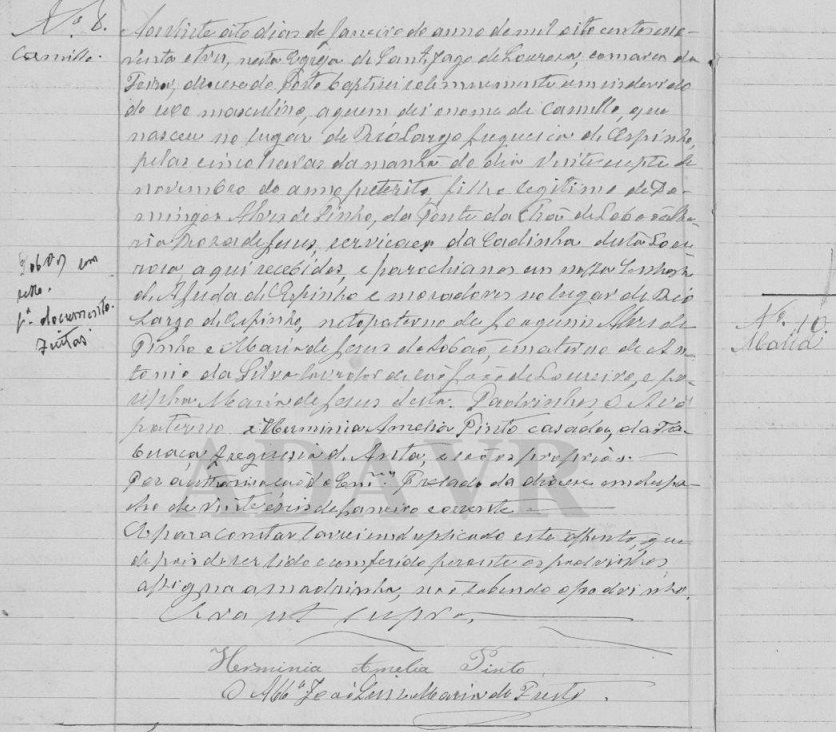 Nº 8.
Camillo.
Aos vinte oito dias de Janeiro do anno de mil oito centos no-
venta e tres, nesta Egreja de Sant Iago de Lourosa, comarca da
Feira, diocese do Porto baptisei solemnemente um individuo
do sexo masculino, a quem dei o nome de Camillo, que
nasceu no lugar de Rio Largo freguesia de Espinho,
pelas cinco horas da manhã do dia vinte e sete de
novembro do anno preterito, filho legitimo de Do-
mingos Alves de Pinho, da Ponte da Chã de Lobão e Ma-
ria Rosa de Jesus, serviçaes, da Cadinha desta Lou-
rosa, aqui recebidos, e parochianos em nossa Senhora
d'Ajuda de Espinho e moradores no lugar de Rio
Largo de Espinho, neto paterno de Joaquim Alves de
Pinho e Maria de Jesus de Lobão e materno de An-
tonio da Silva lavrador de São João de Loureiro, e Jo-
sepha Maria de Jesus desta. Padrinhos O Avô
paterno e Herminia Amelia Pinto casada, da
freguesia d'Anta, e são os proprios.
Por authorisação do Prelado da diocese em despa-
cho de vinte seis de janeiro corrente.
E para constar lavrei em duplicado este assento, que
depois de ser lido e conferido perante os padrinhos,
assigna a madrinha, não sabendo o padrinho.
Era ut supra.
Herminia Amelia Pinto
O Abbe. João Luiz Maria do Preto.
com
sello.
pª documento.
Nº. 10.
Maria
ADAVR